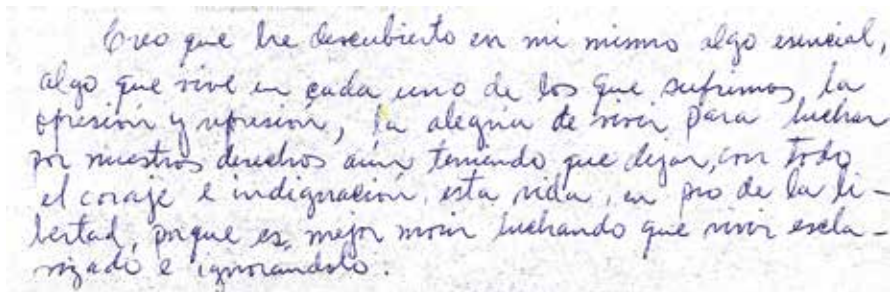 Creo que he descubierto en mi mismo algo esencial,
algo que vive en cada uno de los que sufrimos la
opresión y represión, la alegria de vivir para luchar
por nuestros derechos aún teniendo que dejar, con todo
el coraje e indignación, esta vida, en pro de la li-
bertad, porque es mejor morir luchando que vivir escla-
vizado e ignorandolo.